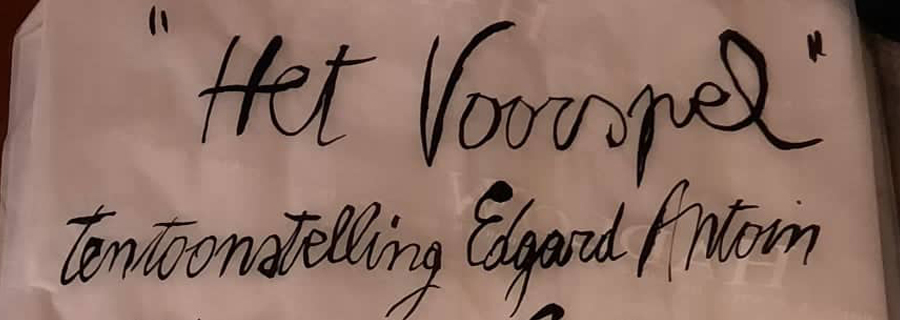 "Het Voorspel"
tentoonstelling Edgard Antoin